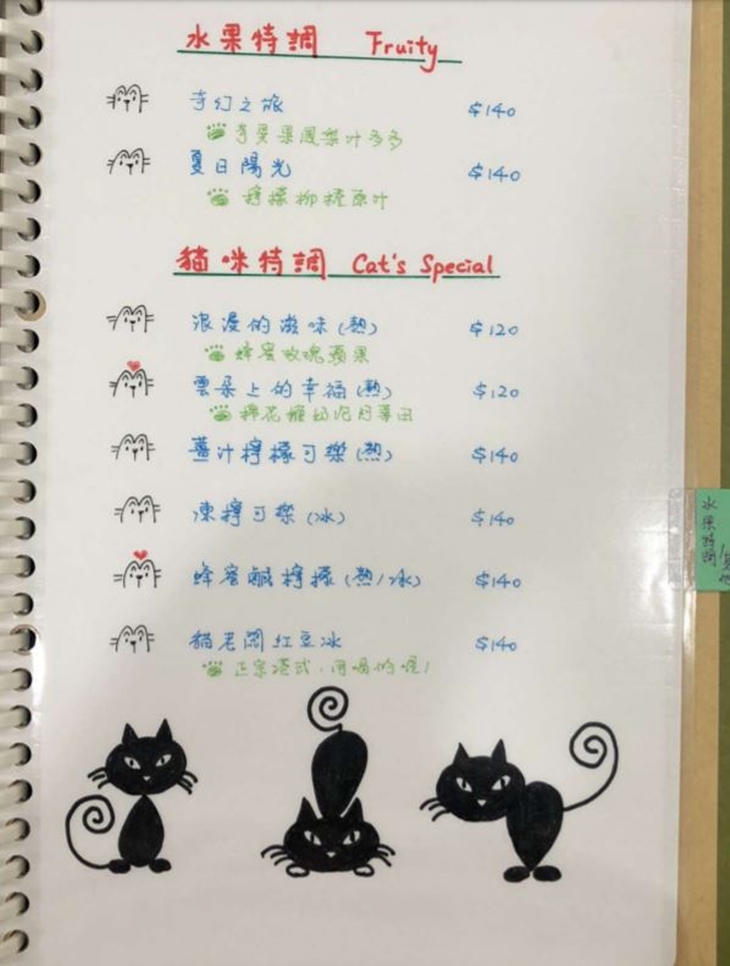 水果特調 Fruity
奇幻之旅 $140
奇異果鳳梨汁多多
夏日陽光 $140
檸檬柳橙原汁
貓咪特調 Cat's Special
浪漫的滋味(熱) $120
蜂蜜玫瑰蘋果
雲朵上的幸福(熱) $120
棉花糖奶泡阿華田
薑汁檸檬可樂(熱) $140
凍檸可樂(冰) $140
蜂蜜鹹檸檬(熱/冰) $140
貓老闆紅豆冰 $140
正宗港式,用喝的喔!
水果特調